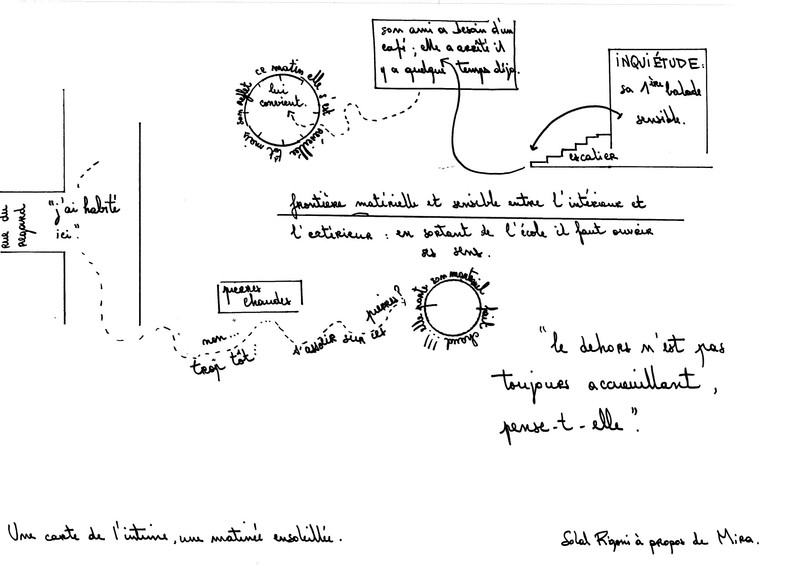 son ami a besoin d'un
café ; elle a arrêté il
y a quelque temps déjà.
INQUIÉTUDE :
sa 1ère balade
sensible.
escalier
ce matin elle s'est réveillée tôt mais son reflet
lui
convient.
frontière matérielle et sensible entre l'intérieur et
l'extérieur : en sortant de l'école il faut ouvrir
ses sens.
rue du
Regard
"j'ai habité
ici."
pierres
chaudes
non...
trop tôt
s'assoir sur les
pierres?
elle porte son manteau
fait chaud !!!
"le dehors n'est pas
toujours accueillant,
pense-t-elle".
Une carte de l'intime, une matinée ensoleillée.
Solal Rigoni à propos de Mira.